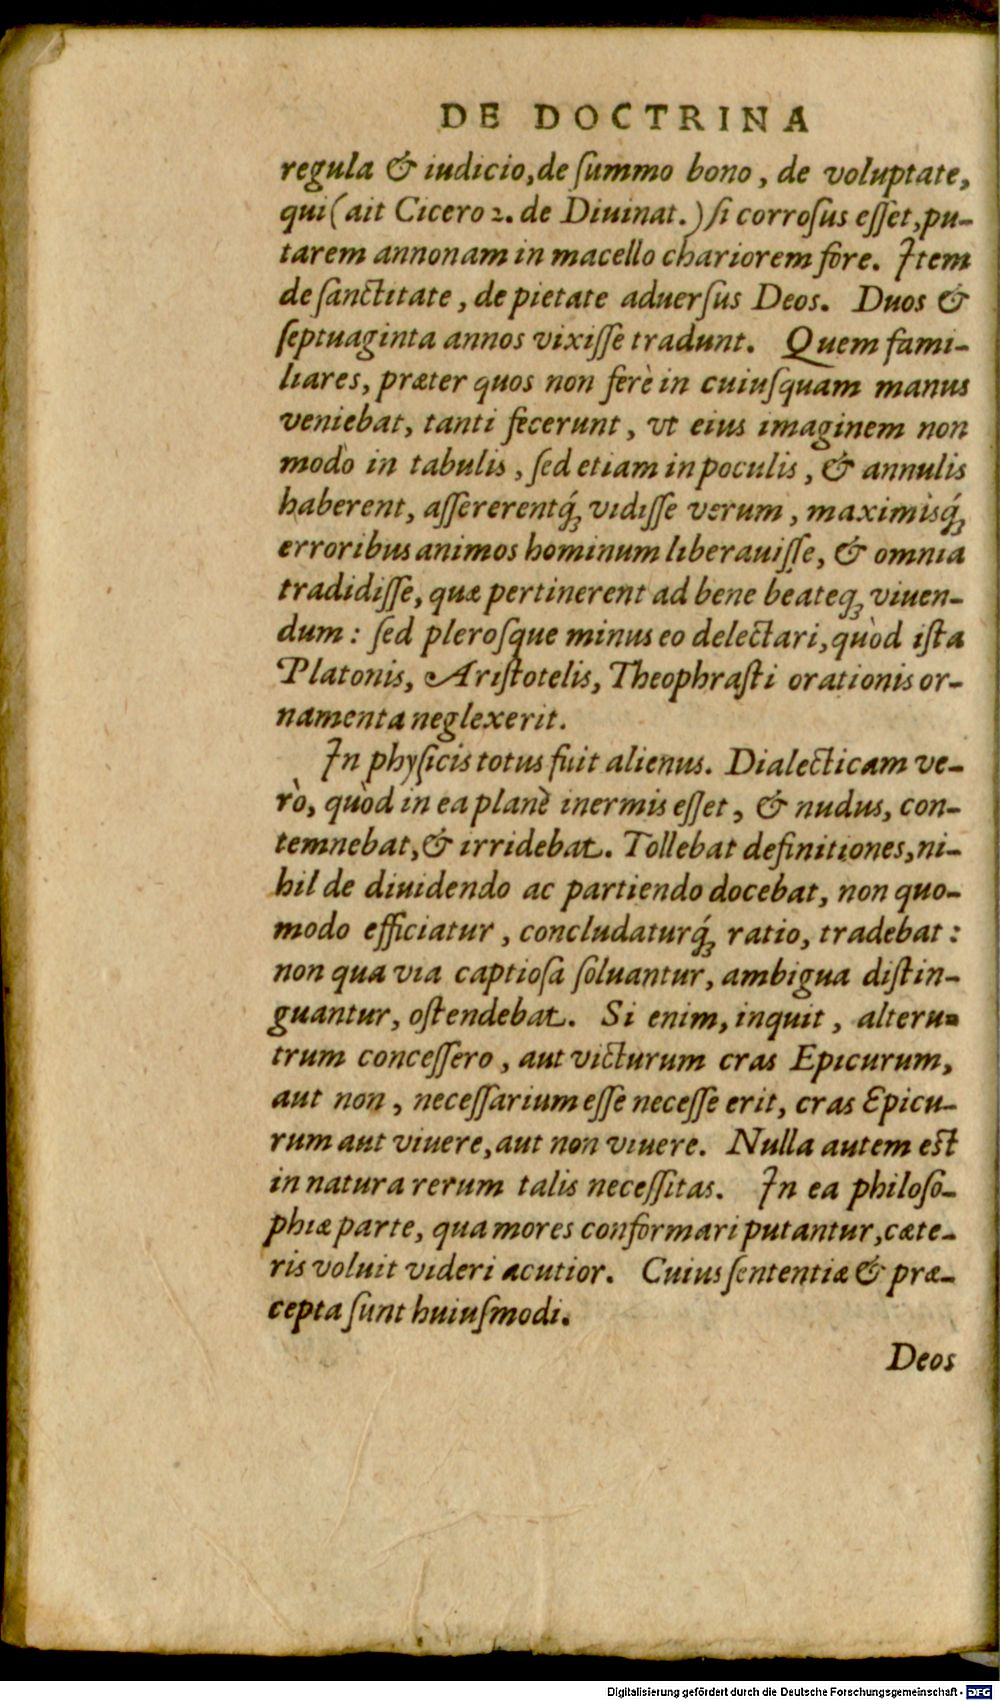 DE DOCTRINA
regula & iudicio, de ſummo bono, de voluptate,
qui (ait Cicero 2. de Diuinat.) ſi corroſus eſſet, pu-
tarem annonam in macello chariorem fore. Item
de ſanctitate, de pietate aduerſus Deos. Duos &
ſeptuaginta annos vixiſſe tradunt. Quem fami-
liares, præter quos non ferè in cuiuſquam manus
veniebat, tanti fecerunt, vt eius imaginem non
modò in tabulis, ſed etiam in poculis, & annulis
haberent, aſſererentq́; vidiſſe verum, maximiſq́;
erroribus animos hominum liberauiſſe, & omnia
tradidiſſe, quæ pertinerent ad bene beateq; viuen-
dum: ſed pleroſque minus eo delectari, quòd iſta
Platonis, Ariſtotelis, Theophraſti orationis or-
namenta neglexerit.
In phyſicis totus fuit alienus. Dialecticam ve-
rò, quòd in ea planè inermis eſſet, & nudus, con-
temnebat, & irridebat. Tollebat definitiones, ni-
hil de diuidendo ac partiendo docebat, non quo-
modo efficiatur, concludaturq́; ratio, tradebat:
non qua via captioſa ſoluantur, ambigua diſtin-
guantur, oſtendebat. Si enim, inquit, alteru-
trum conceſſero, aut victurum cras Epicurum,
aut non, neceſſarium eſſe neceſſe erit, cras Epicu-
rum aut viuere, aut non viuere. Nulla autem eſt
in natura rerum talis neceſſitas. In ea philoſo-
phiæ parte, qua mores conformari putantur, cæte-
ris voluit videri acutior. Cuius ſententiæ & præ-
cepta ſunt huiuſmodi.
Deos
Digitalisierung gefördert durch die Deutsche Forschungsgemeinschaft - DFG